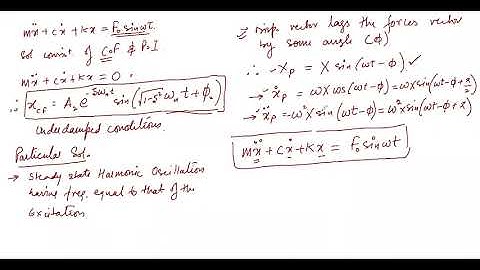 mẍ + cẋ + kx = F₀ sinωt.
Sol consist of C.F & P.I
mẍ + cẋ + kx = 0 .
∴ x_CF = A₂ e^(-ξωₙt) sin(√(1-ξ²) ωₙt + φ₂)
Underdamped conditions.
Particular Sol.
→ Steady state Harmonic Oscillation
having freq. equal to that of the
Excitation
vector lags the forces vector
by some angle (φ)
∴ - x_P = X sin(ωt-φ) ✓
→ ẋ_P = ωX cos(ωt-φ) = ωX sin(ωt-φ+π/2)
→ ẍ_P = -ω²X sin(ωt-φ) = ω²X sin(ωt-φ+π)
mẍ + cẋ + kx = F₀ sinωt